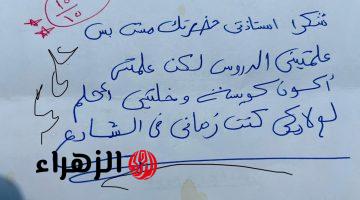 ١٠/١٠
شكرا استاذتى حضرتك مش بس
علمتينى الدروس لكن علمتنى
أكون كويسه وخلتنى أحلم
لولاكى كنت زمانى فى الشارع
الزهراء